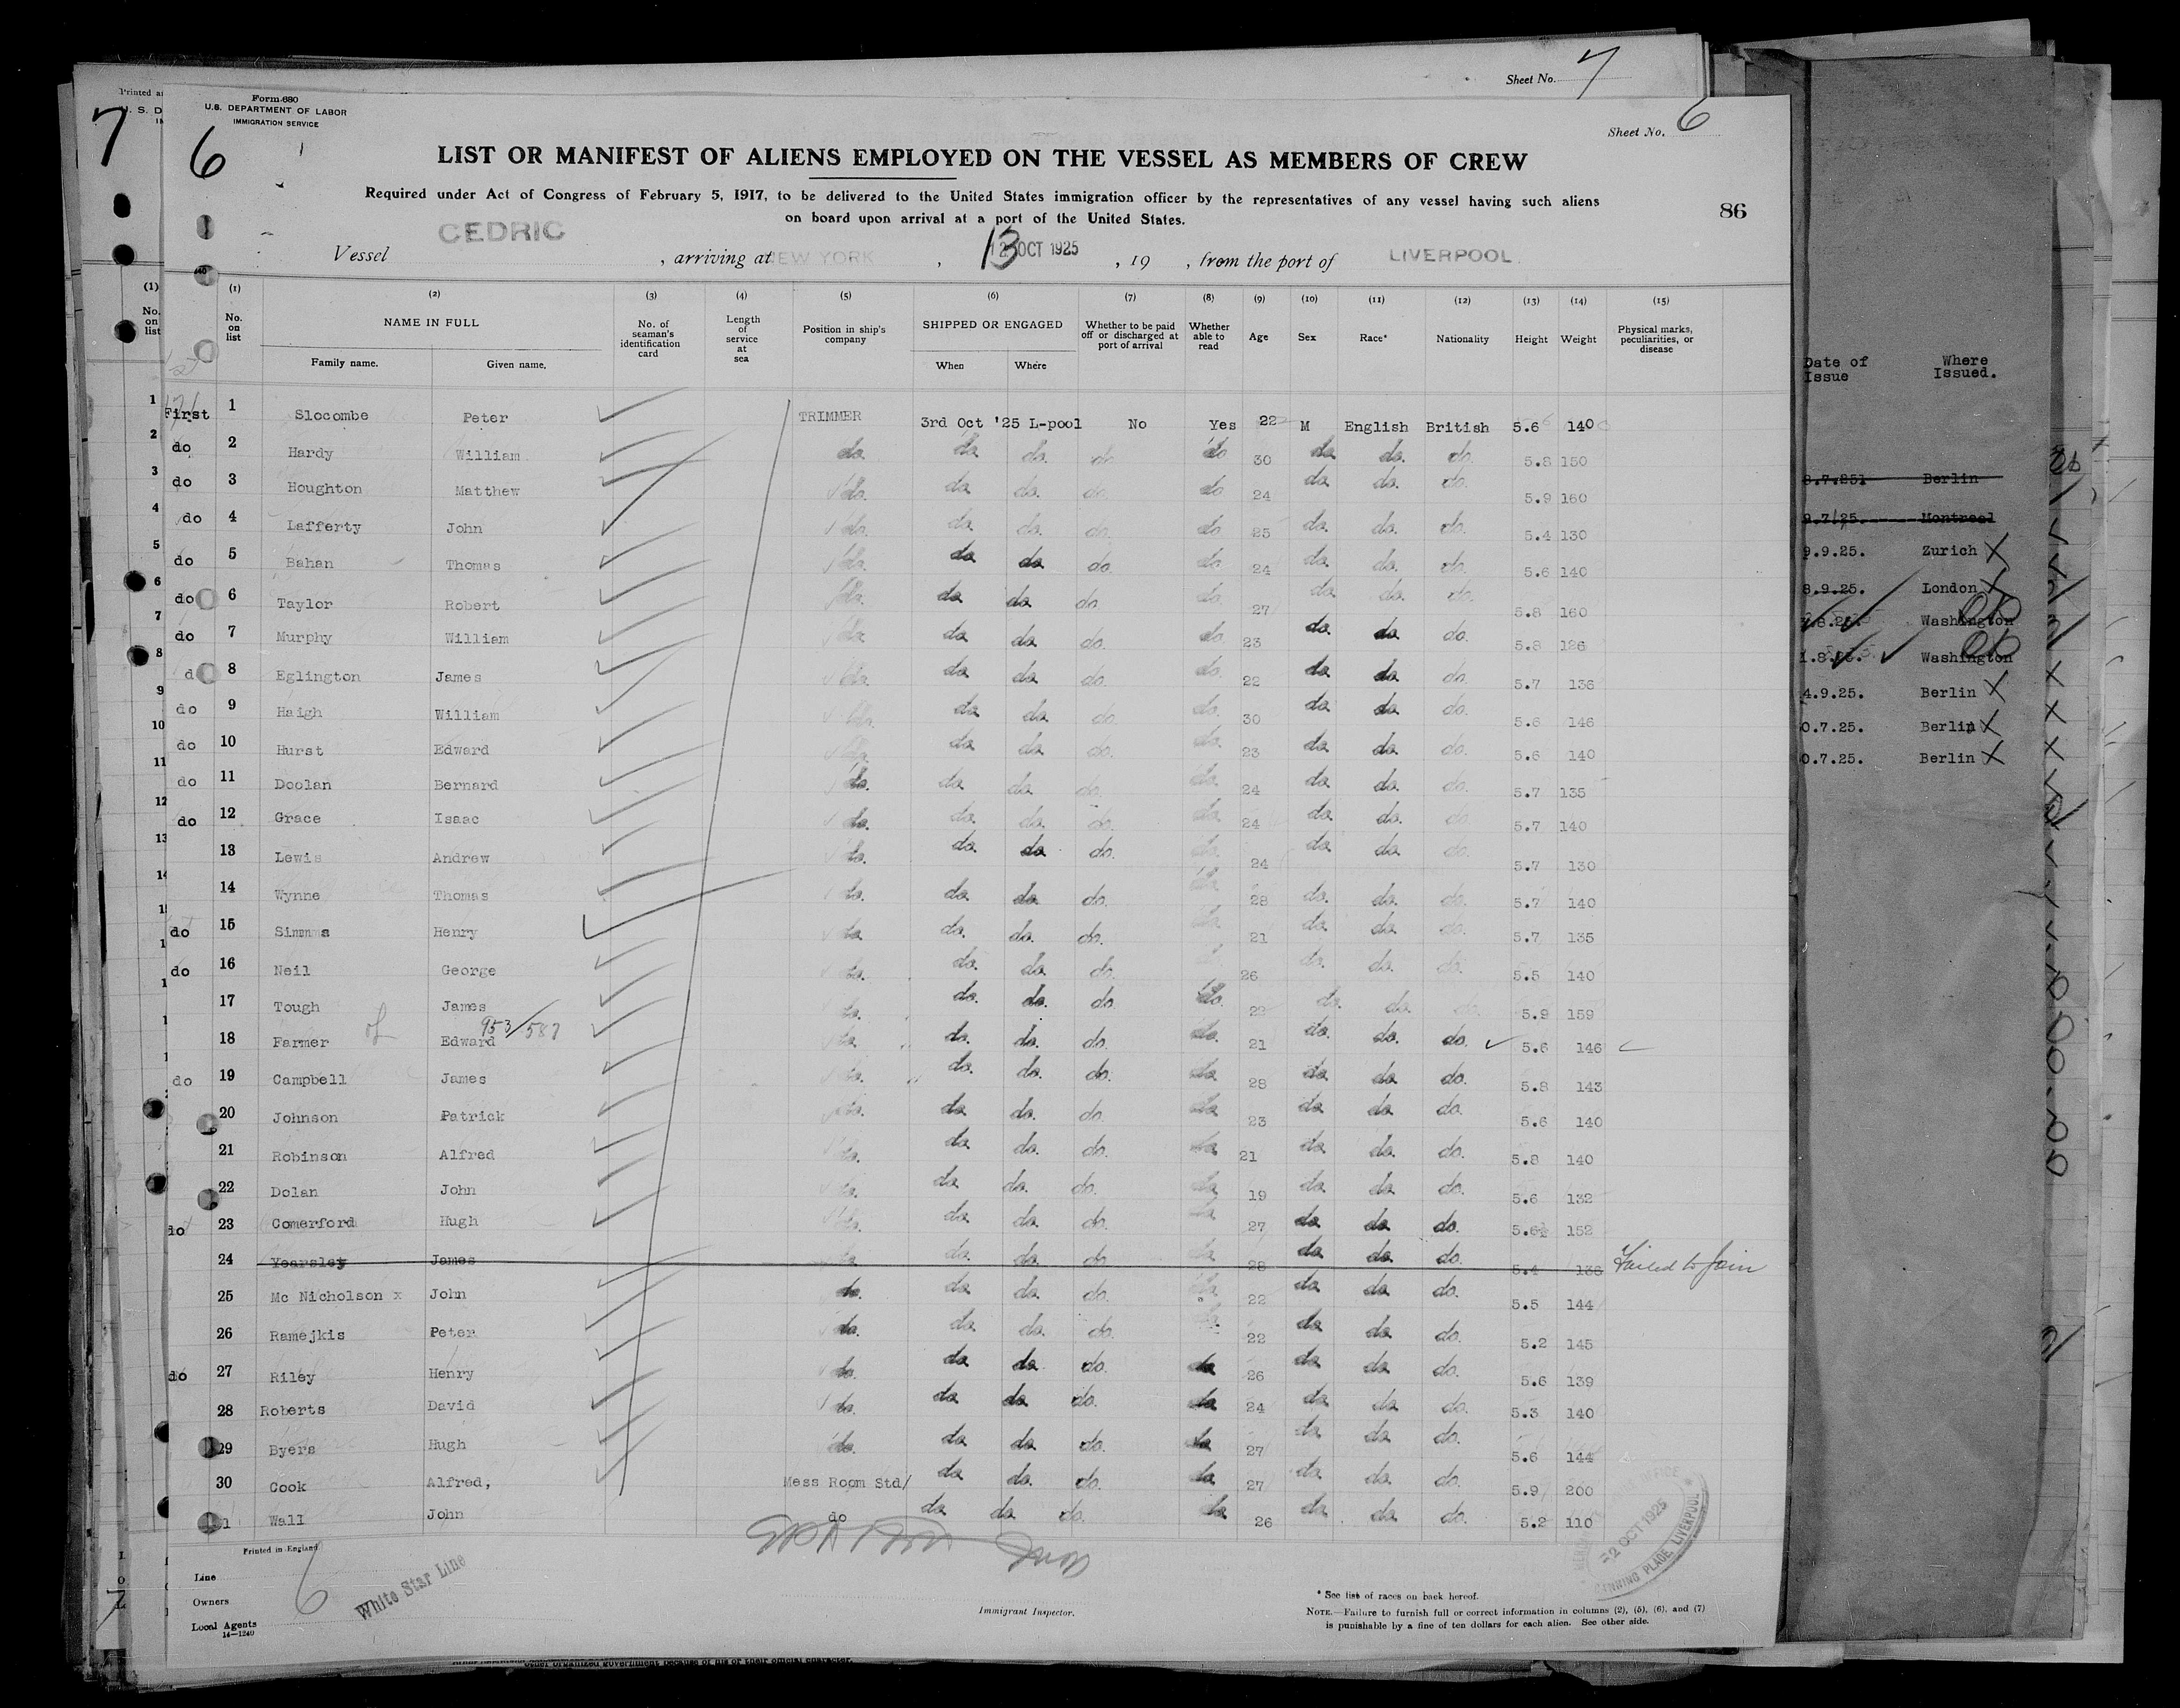 Sheet No. 7
Printed
7 U. S. D
Form 680
U.S. DEPARTMENT OF LABOR
IMMIGRATION SERVICE
6
Sheet No. 6
LIST OR MANIFEST OF ALIENS EMPLOYED ON THE VESSEL AS MEMBERS OF CREW
Required under Act of Congress of February 5, 1917, to be delivered to the United States immigration officer by the representatives of any vessel having such aliens
on board upon arrival at a port of the United States.
86
Vessel CEDRIC , arriving at NEW YORK , 13 OCT 1925 , 19 , from the port of LIVERPOOL
(1) (2) (3) (4) (5) (6) (7) (8) (9) (10) (11) (12) (13) (14) (15)
No. on list NAME IN FULL Family name. Given name. No. of seaman's identification card Length of service at sea Position in ship's company SHIPPED OR ENGAGED When Where Whether to be paid off or discharged at port of arrival Whether able to read Age Sex Race* Nationality Height Weight Physical marks, peculiarities, or disease
First 1 Slocombe Peter TRIMMER 3rd Oct '25 L-pool No Yes 22 M English British 5.6 140
do 2 Hardy William do. do. do. do. do 30 do. do. do. 5.8 150
do 3 Houghton Matthew do. do. do. do. do 24 do. do. do. 5.9 160
do 4 Lafferty John do. do. do. do. do 25 do. do. do. 5.4 130
do 5 Bahan Thomas do. do. do. do. do 24 do. do. do. 5.6 140
do 6 Taylor Robert do. do. do. do. do. 27 do. do. do. 5.8 160
do 7 Murphy William do. do. do. do. do. 23 do. do. do. 5.8 126
do 8 Eglington James do. do. do. do. do. 22 do. do. do. 5.7 136
do 9 Haigh William do. do. do. do. do. 30 do. do. do. 5.6 146
do 10 Hurst Edward do. do. do. do. do. 23 do. do. do. 5.6 140
do 11 Doolan Bernard do. do. do. do. do. 24 do. do. do. 5.7 135
do 12 Grace Isaac do. do. do. do. do. 24 do. do. do. 5.7 140
13 Lewis Andrew do. do. do. do. do. 24 do. do. do. 5.7 130
14 Wynne Thomas do. do. do. do. do. 28 do. do. do. 5.7 140
do 15 Simmms Henry do. do. do. do. do. 21 do. do. do. 5.7 135
do 16 Neil George do. do. do. do. 26 do. do. do. 5.5 140
17 Tough James do. do. do. do. do. do. do. do. 5.9 159
953/587
18 Farmer Edward do. do. do. do. do. 21 do. do. do. 5.6 146
do 19 Campbell James do. do. do. do. do. 28 do. do. do. 5.8 143
20 Johnson Patrick do. do. do. do. do. 23 do. do. do. 5.6 140
21 Robinson Alfred do. do. do. do. do. 21 do. do. do. 5.8 140
22 Dolan John do. do. do. do. do. 19 do. do. do. 5.6 132
do 23 Comerford Hugh do. do. do. do. do. 27 do. do. do. 5.6½ 152
24 Yearsley James do. do. do. do. do. 28 do. do. do. 5.4 136 Failed to Join
25 Mc Nicholson x John do. do. do. do. do. 22 do. do. do. 5.5 144
26 Ramejkis Peter do. do. do. do. 22 do. do. do. 5.2 145
do 27 Riley Henry do. do. do. do. do. 26 do. do. do. 5.6 139
28 Roberts David do. do. do. do. do. 24 do. do. do. 5.3 140
29 Byers Hugh do. do. do. do. do. 27 do. do. do. 5.6 144
30 Cook Alfred, Mess Room Std/ do. do. do. do. 27 do. do. do. 5.9 200
Wall John do do. do. do. do. 26 do. do. do. 5.2 110
Date of Issue Where Issued.
8.7.251 Berlin
9.7/25. Montreal
9.9.25. Zurich X
8.9.25. London X
Washington
1.8. Washington
4.9.25. Berlin X
0.7.25. Berlin X
0.7.25. Berlin X
Printed in England
Line
Owners
Local Agents
14—1240
6
White Star Line
Immigrant Inspector.
2 OCT 1925
CANNING PLACE, LIVERPOOL
* See list of races on back hereof.
NOTE.—Failure to furnish full or correct information in columns (2), (5), (6), and (7)
is punishable by a fine of ten dollars for each alien. See other side.
other organized government because of his or their official character.